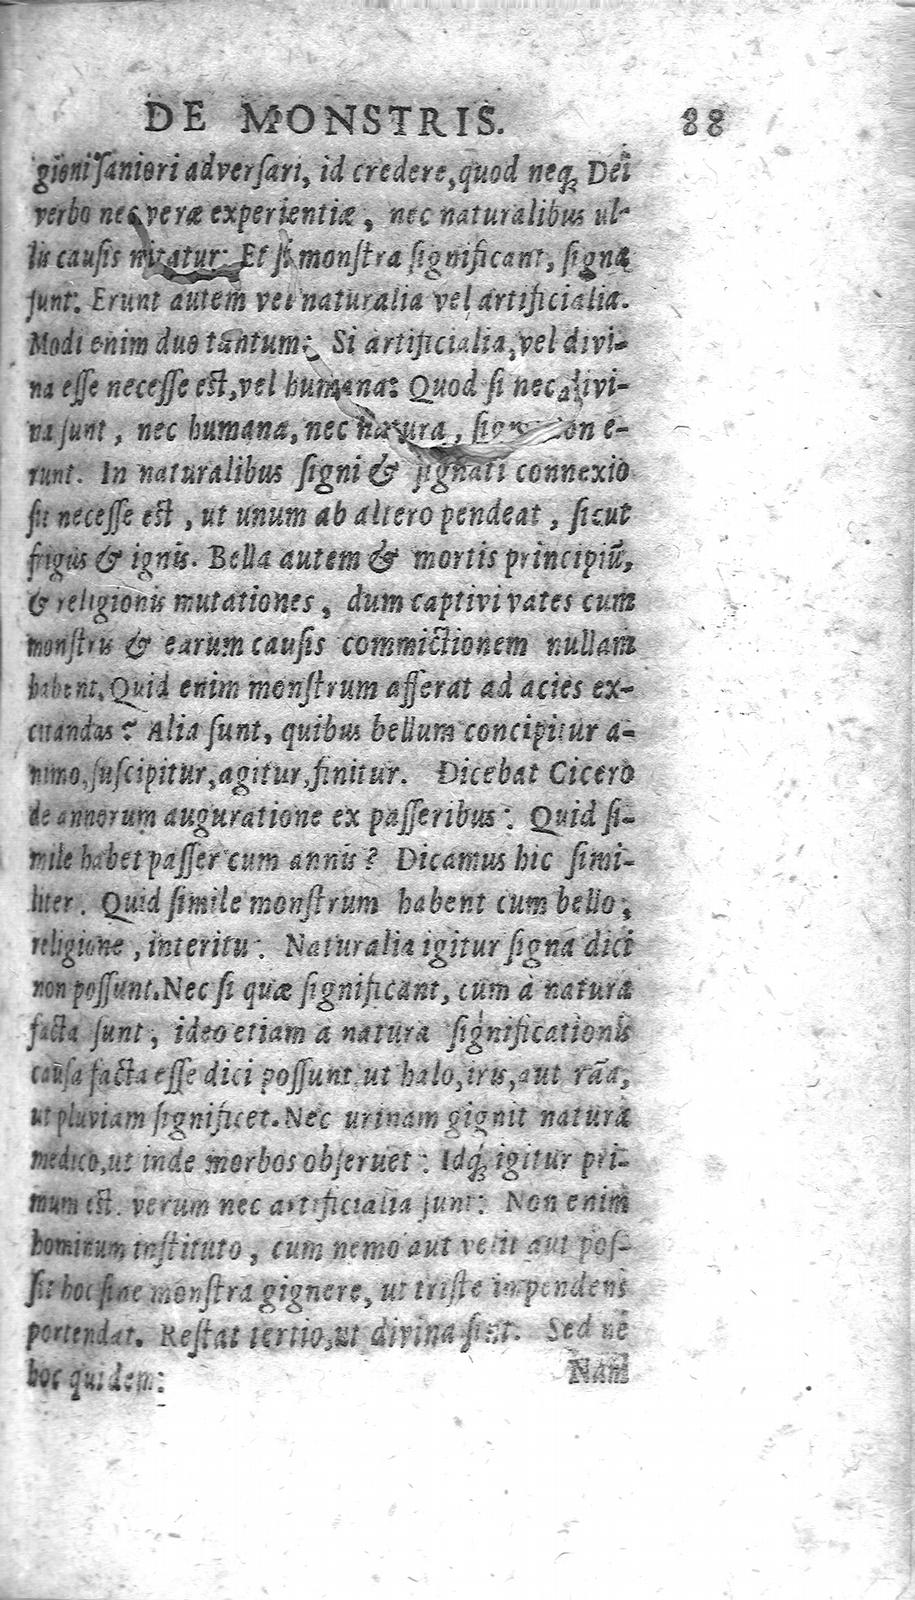 DE MONSTRIS. 88
gioni ſaniori adverſari, id credere, quod neq; Dei
verbo nec veræ experientiæ, nec naturalibus ul-
lis cauſis nitatur: Et ſi monſtra ſignificant, ſigna
ſunt: Erunt autem vel naturalia vel artificialia.
Modi enim duo tantum: Si artificialia, vel divi-
na eſſe neceſſe eſt, vel humana: Quod ſi nec divi-
na ſunt, nec humana, nec natura, non e-
runt. In naturalibus ſigni & ſignati connexio
ſit neceſſe eſt, ut unum ab altero pendeat, ſicut
frigus & ignis. Bella autem & mortis principiū,
& religionis mutationes, dum captivi vates cum
monſtris & earum cauſis commictionem nullam
habent. Quid enim monſtrum afferat ad acies ex-
citandas? Alia ſunt, quibus bellum concipitur a-
nimo, ſuſcipitur, agitur, finitur. Dicebat Cicero
de annorum auguratione ex paſſeribus: Quid ſi-
mile habet paſſer cum annis? Dicamus hic ſimi-
liter. Quid ſimile monſtrum habent cum bello,
religione, interitu: Naturalia igitur ſigna dici
non poſſunt. Nec ſi quæ ſignificant, cum a natura
facta ſunt, ideo etiam a natura ſignificationis
cauſa facta eſſe dici poſſunt ut halo, iris, aut rāa,
ut pluviam ſignificet. Nec urinam gignit natura
medico, ut inde morbos obſeruet: Idq; igitur pri-
mum eſt. verum nec artificialia ſunt: Non enim
hominum inſtituto, cum nemo aut velit aut poſ-
ſit hoc ſine monſtra gignere, ut triſte impendens
portendat. Reſtat tertio, ut divina ſint. Sed ne
hoc quidem: Nam